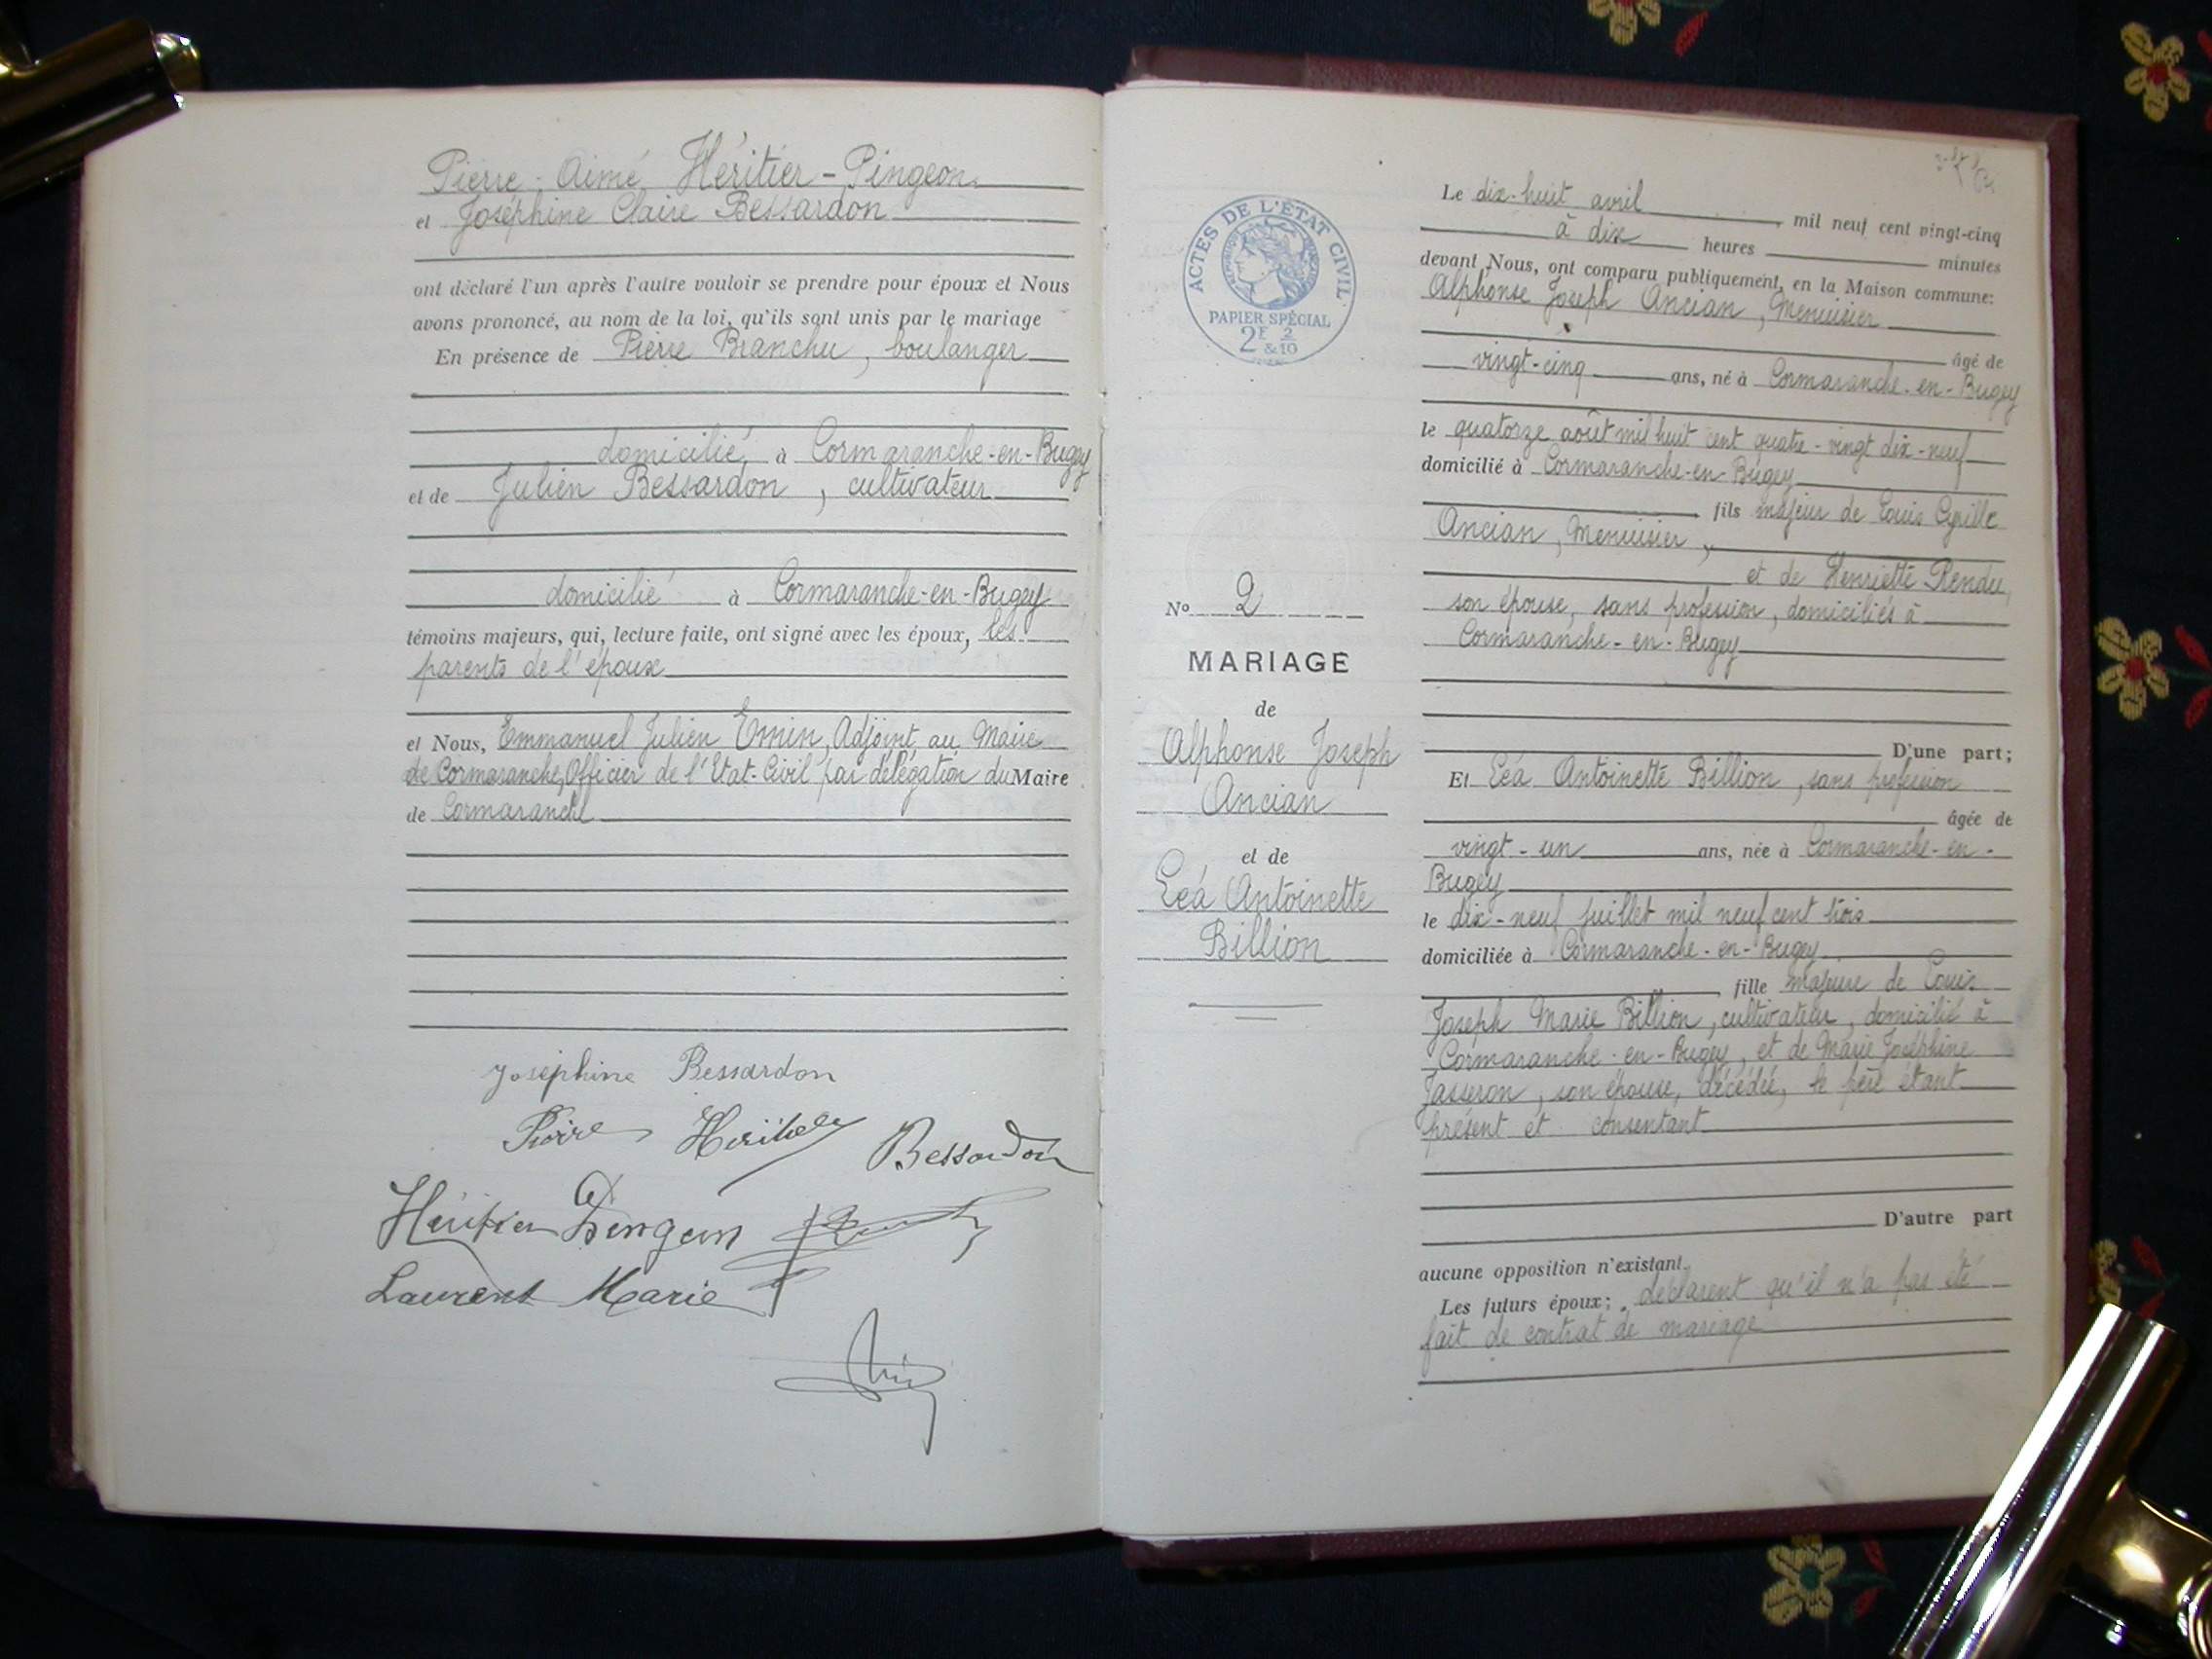 Pierre Aimé Héritier-Pingeon
et Joséphine Claire Bessardon
ont déclaré l'un après l'autre vouloir se prendre pour époux et Nous
avons prononcé, au nom de la loi, qu'ils sont unis par le mariage
En présence de Pierre Branchu, boulanger
domicilié à Cormaranche-en-Bugey
et de Julien Bessardon, cultivateur
domicilié à Cormaranche-en-Bugey
témoins majeurs, qui, lecture faite, ont signé avec les époux, les
parents de l'épouse
et Nous, Emmanuel Julien Emin, Adjoint au Maire
de Cormaranche, Officier de l'Etat-Civil par délégation du Maire
de Cormaranche
Joséphine Bessardon
Pierre Héritier
Bessardon
Héritier Pingeon
Laurent Marie
ACTES DE L'ÉTAT CIVIL
RÉPUBLIQUE FRANÇAISE
PAPIER SPÉCIAL
2F 2
&10
No 2
MARIAGE
de
Alphonse Joseph
Ancian
et de
Léa Antoinette
Billion
Le dix-huit avril mil neuf cent vingt-cinq
à dix heures minutes
devant Nous, ont comparu publiquement, en la Maison commune:
Alphonse Joseph Ancian, Menuisier
âgé de
vingt-cinq ans, né à Cormaranche-en-Bugey
le quatorze août mil huit cent quatre-vingt dix-neuf
domicilié à Cormaranche-en-Bugey
fils majeur de Louis Cyrille
Ancian, Menuisier,
et de Henriette Rendu,
son épouse, sans profession, domiciliés à
Cormaranche-en-Bugey
D'une part;
Et Léa Antoinette Billion, sans profession
âgée de
vingt-un ans, née à Cormaranche-en-
Bugey
le dix-neuf juillet mil neuf cent trois
domiciliée à Cormaranche-en-Bugey
fille majeure de Louis
Joseph Marie Billion, cultivateur, domicilié à
Cormaranche-en-Bugey, et de Marie Joséphine
Jasseron, son épouse, décédée, le père étant
présent et consentant
D'autre part
aucune opposition n'existant.
Les futurs époux; déclarent qu'il n'a pas été
fait de contrat de mariage